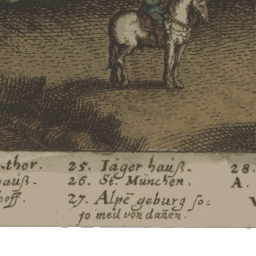 thor. 25. Iäger hauß. 28.
hauß. 26. St. München. A.
hoff. 27. Alpē geburg so=
10 meil von dañen.